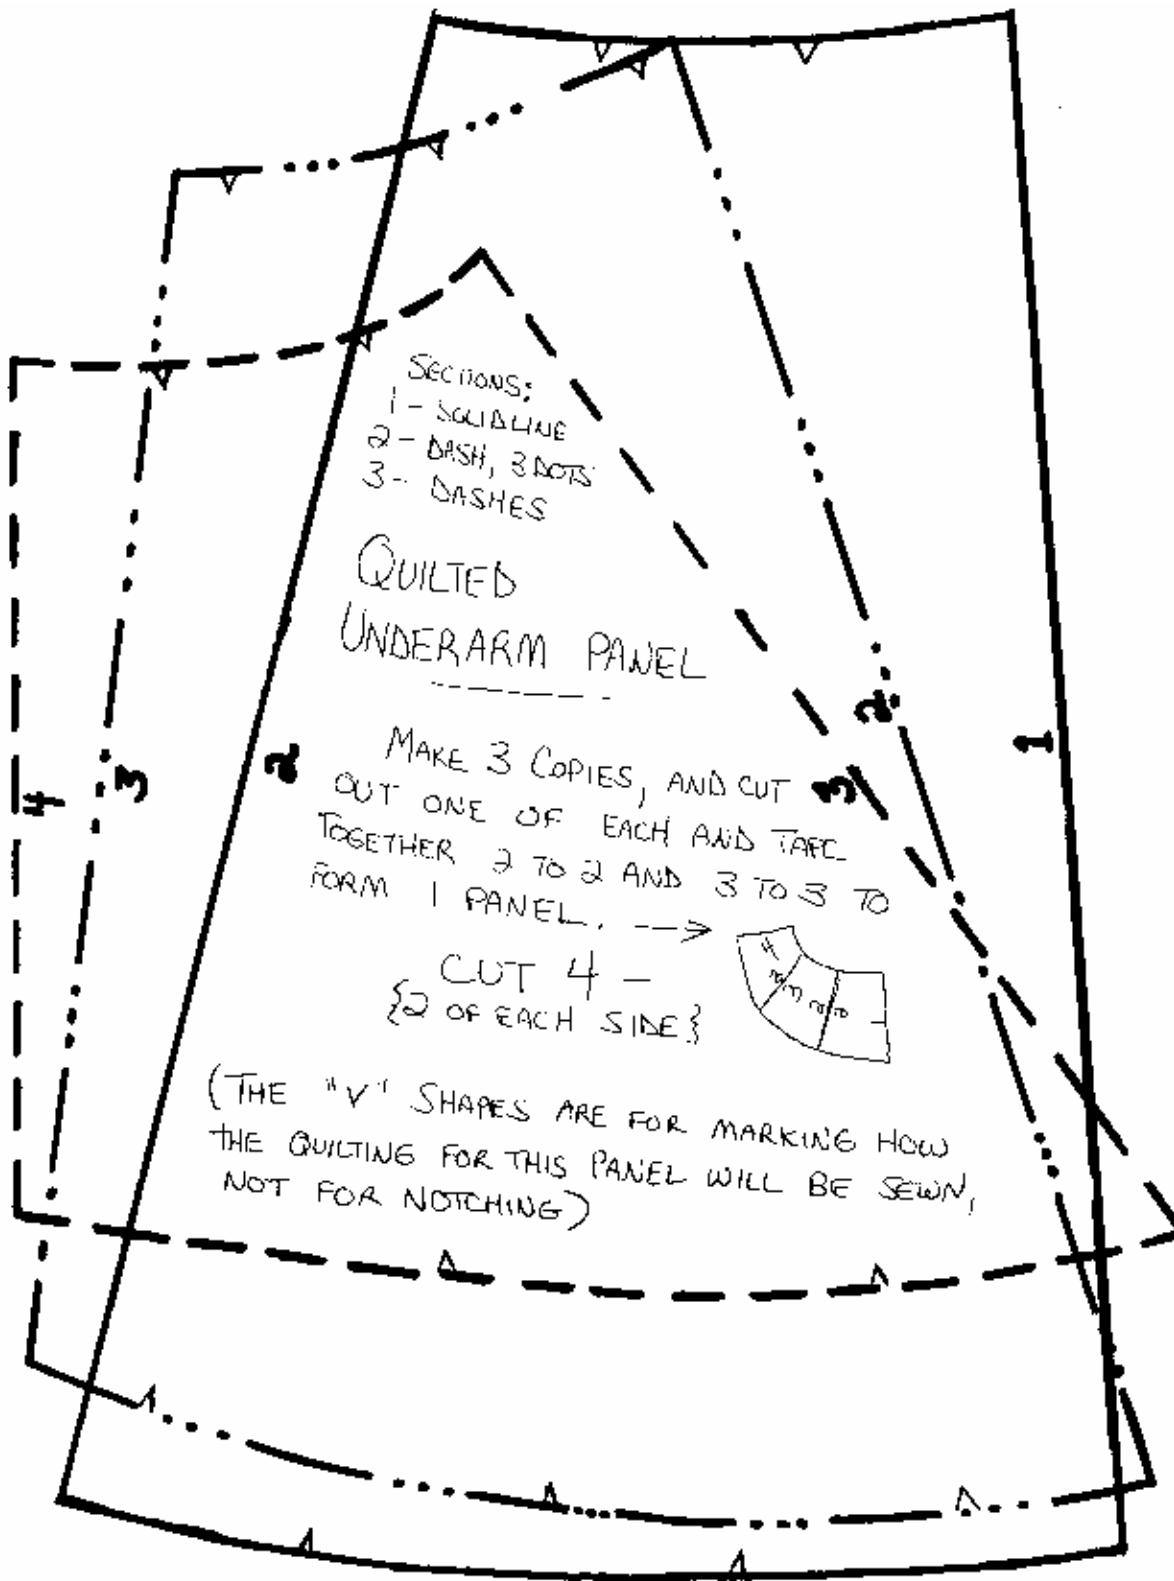 SECTIONS:
1 - SOLID LINE
2 - DASH, 3 DOTS
3 - DASHES
QUILTED
UNDERARM PANEL
2
1
2
3
3
4
MAKE 3 COPIES, AND CUT
OUT ONE OF EACH AND TAPE
TOGETHER 2 TO 2 AND 3 TO 3 TO
FORM 1 PANEL.
4
3
3
2
2
1
CUT 4 -
{2 OF EACH SIDE}
(THE "V" SHAPES ARE FOR MARKING HOW
THE QUILTING FOR THIS PANEL WILL BE SEWN,
NOT FOR NOTCHING)